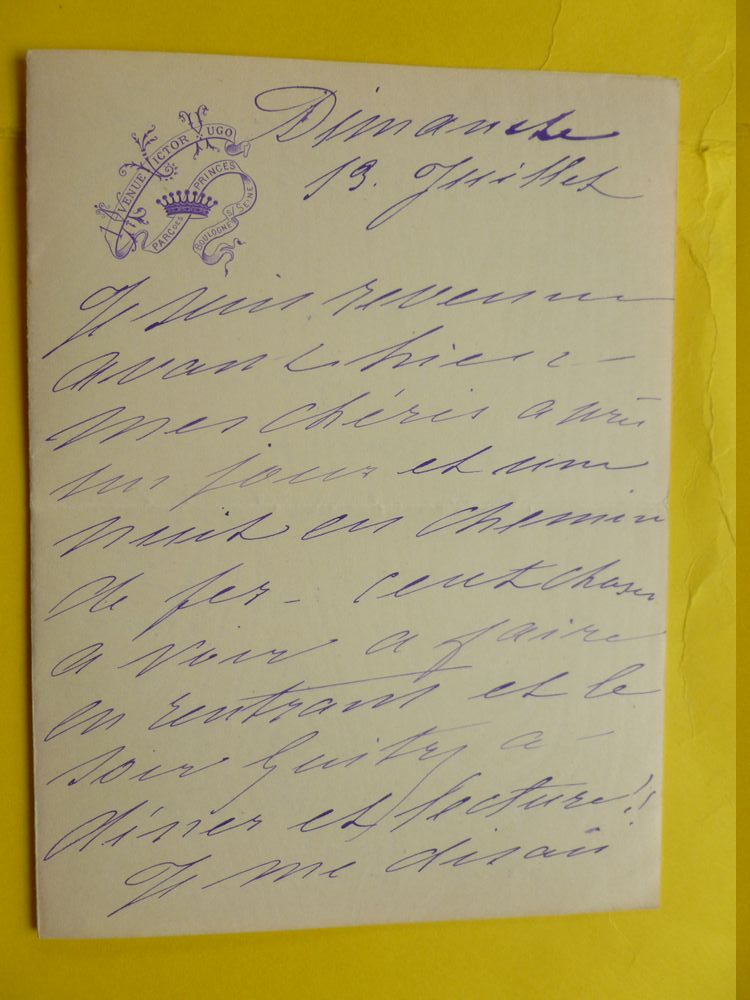 AVENUE VICTOR HUGO
PARC DES PRINCES
BOULOGNE S SEINE
Dimanche
13. Juillet
Je suis revenue
avant hier –
mes chéris après
un jour et une
nuit en chemin
de fer – cent choses
a voir a faire
en rentrant et le
soir Guitry a –
diner et lecture!!
Je me disais